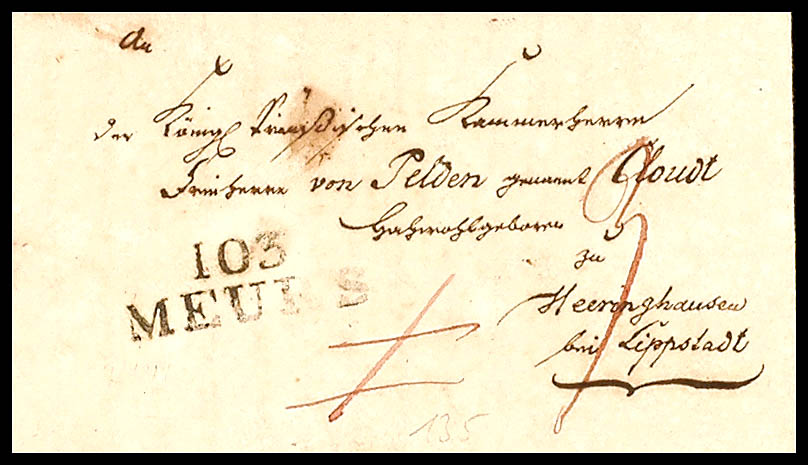 An
der Königl Preußischen Kammerherrn
Freiherrn von Pelden genannt Cloudt
Hochwohlgeboren
zu
103
MEURS
Heeringhausen
bei Lippstadt
135